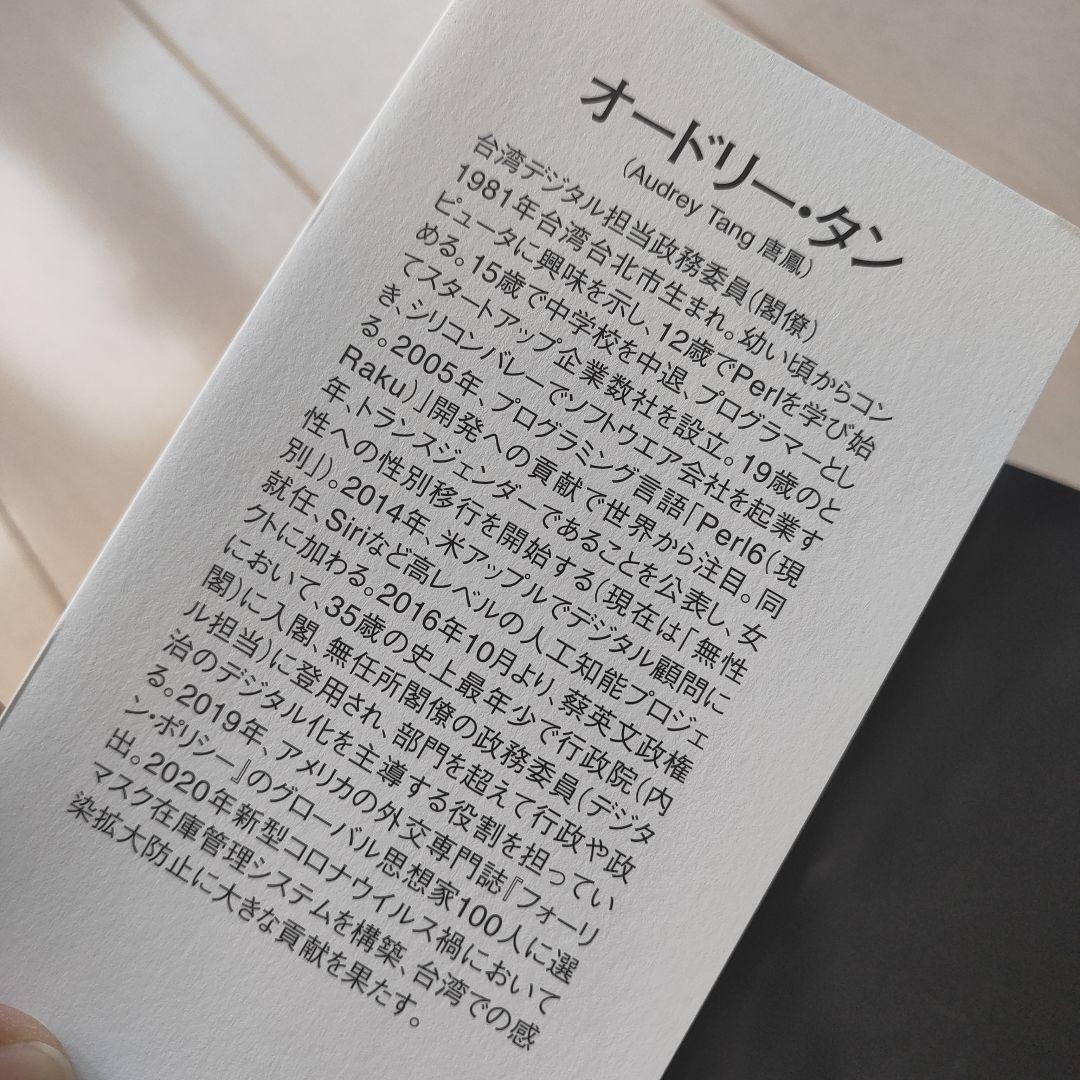 オードリー・タン
(Audrey Tang 唐鳳)
台湾デジタル担当政務委員(閣僚)
1981年台湾台北市生まれ。幼い頃からコン
ピュータに興味を示し、12歳でPerlを学び始
める。15歳で中学校を中退、プログラマーとし
てスタートアップ企業数社を設立。19歳のと
き、シリコンバレーでソフトウエア会社を起業す
る。2005年、プログラミング言語「Perl6(現
Raku)」開発への貢献で世界から注目。同
年、トランスジェンダーであることを公表し、女
性への性別移行を開始する(現在は「無性
別」)。2014年、米アップルでデジタル顧問に
就任、Siriなど高レベルの人工知能プロジェ
クトに加わる。2016年10月より、蔡英文政権
において、35歳の史上最年少で行政院(内
閣)に入閣、無任所閣僚の政務委員(デジタ
ル担当)に登用され、部門を超えて行政や政
治のデジタル化を主導する役割を担ってい
る。2019年、アメリカの外交専門誌『フォーリ
ン・ポリシー』のグローバル思想家100人に選
出。2020年新型コロナウイルス禍において
マスク在庫管理システムを構築、台湾での感
染拡大防止に大きな貢献を果たす。